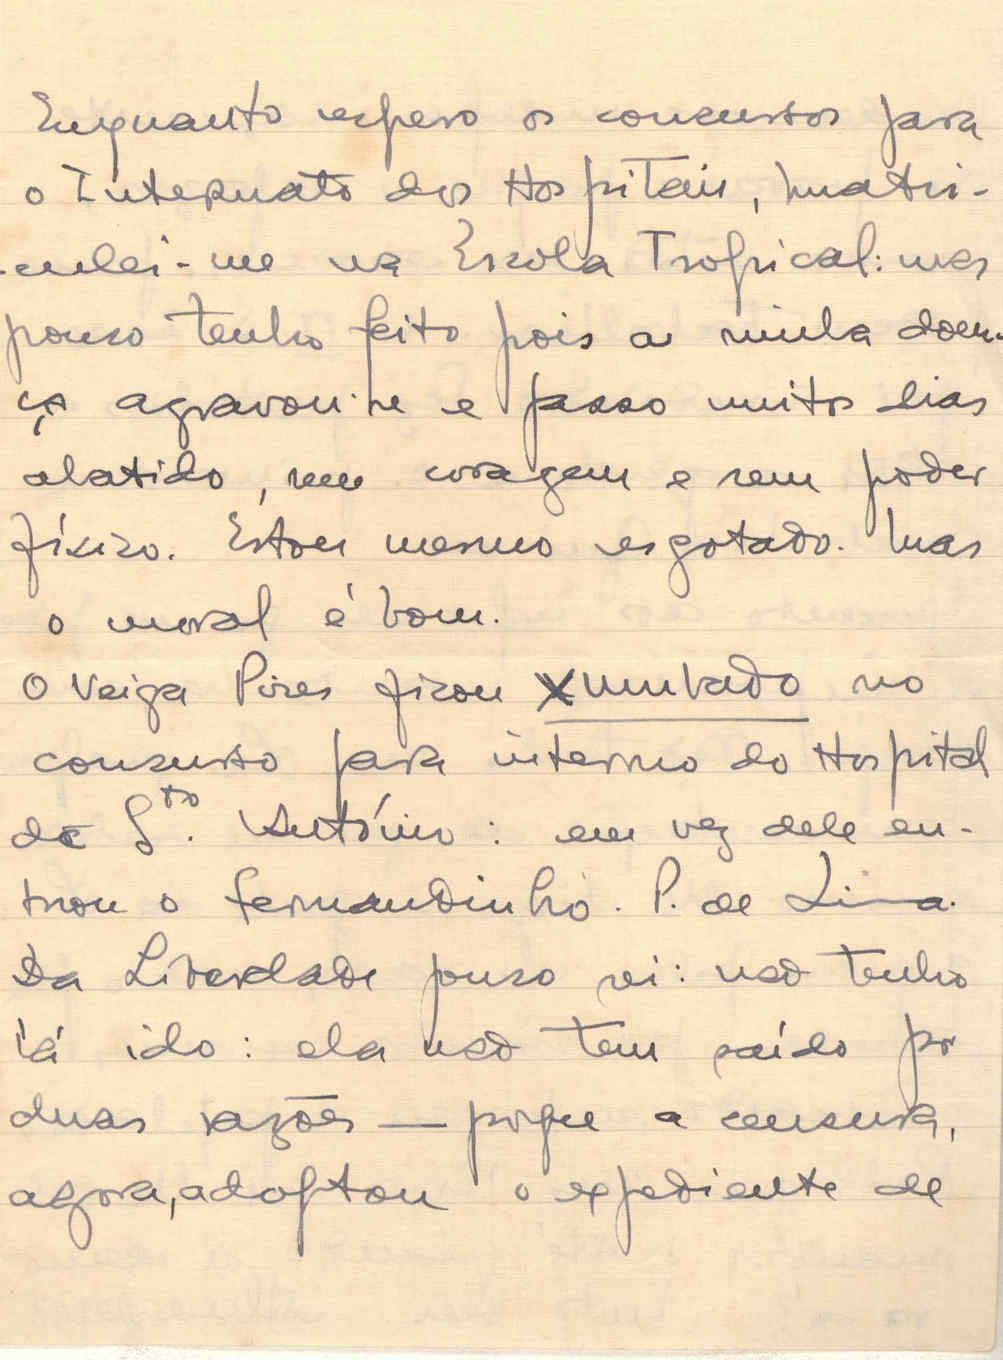 Enquanto espero os concursos para
o Internato dos Hospitais, matri-
culei-me na Escola Tropical: mas
pouco tenho feito pois a minha doen-
ça agravou-se e passo muitos dias
abatido, sem coragem e sem poder
físico. Estou mesmo esgotado. Mas
o moral é bom.
O Veiga Pires ficou chumbado no
concurso para interno do Hospital
de Sto. António: em vez dele en-
trou o Fernandinho. P. de Lima.
Da Liberdade pouco sei: não tenho
lá ido: ela não tem saído por
duas razões — porque a censura,
agora, adoptou o expediente de